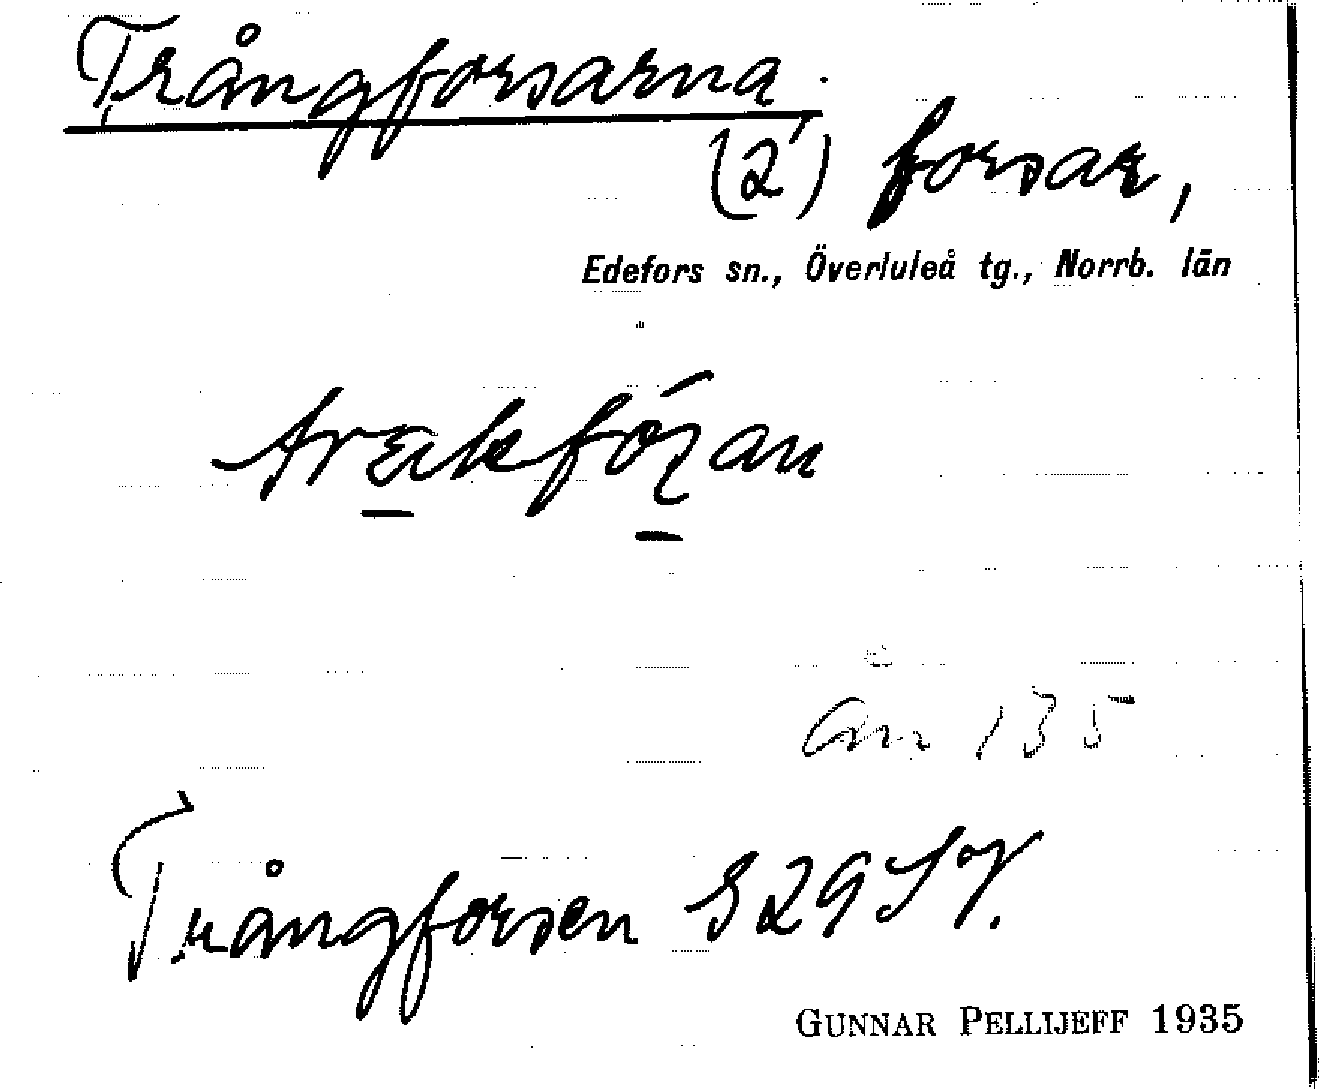 Trångforsarna.
(2) forsar,
Edefors sn., Överluleå tg., Norrb. län
än 135
Trångforsen S29SV.
GUNNAR PELLIJEFF 1935